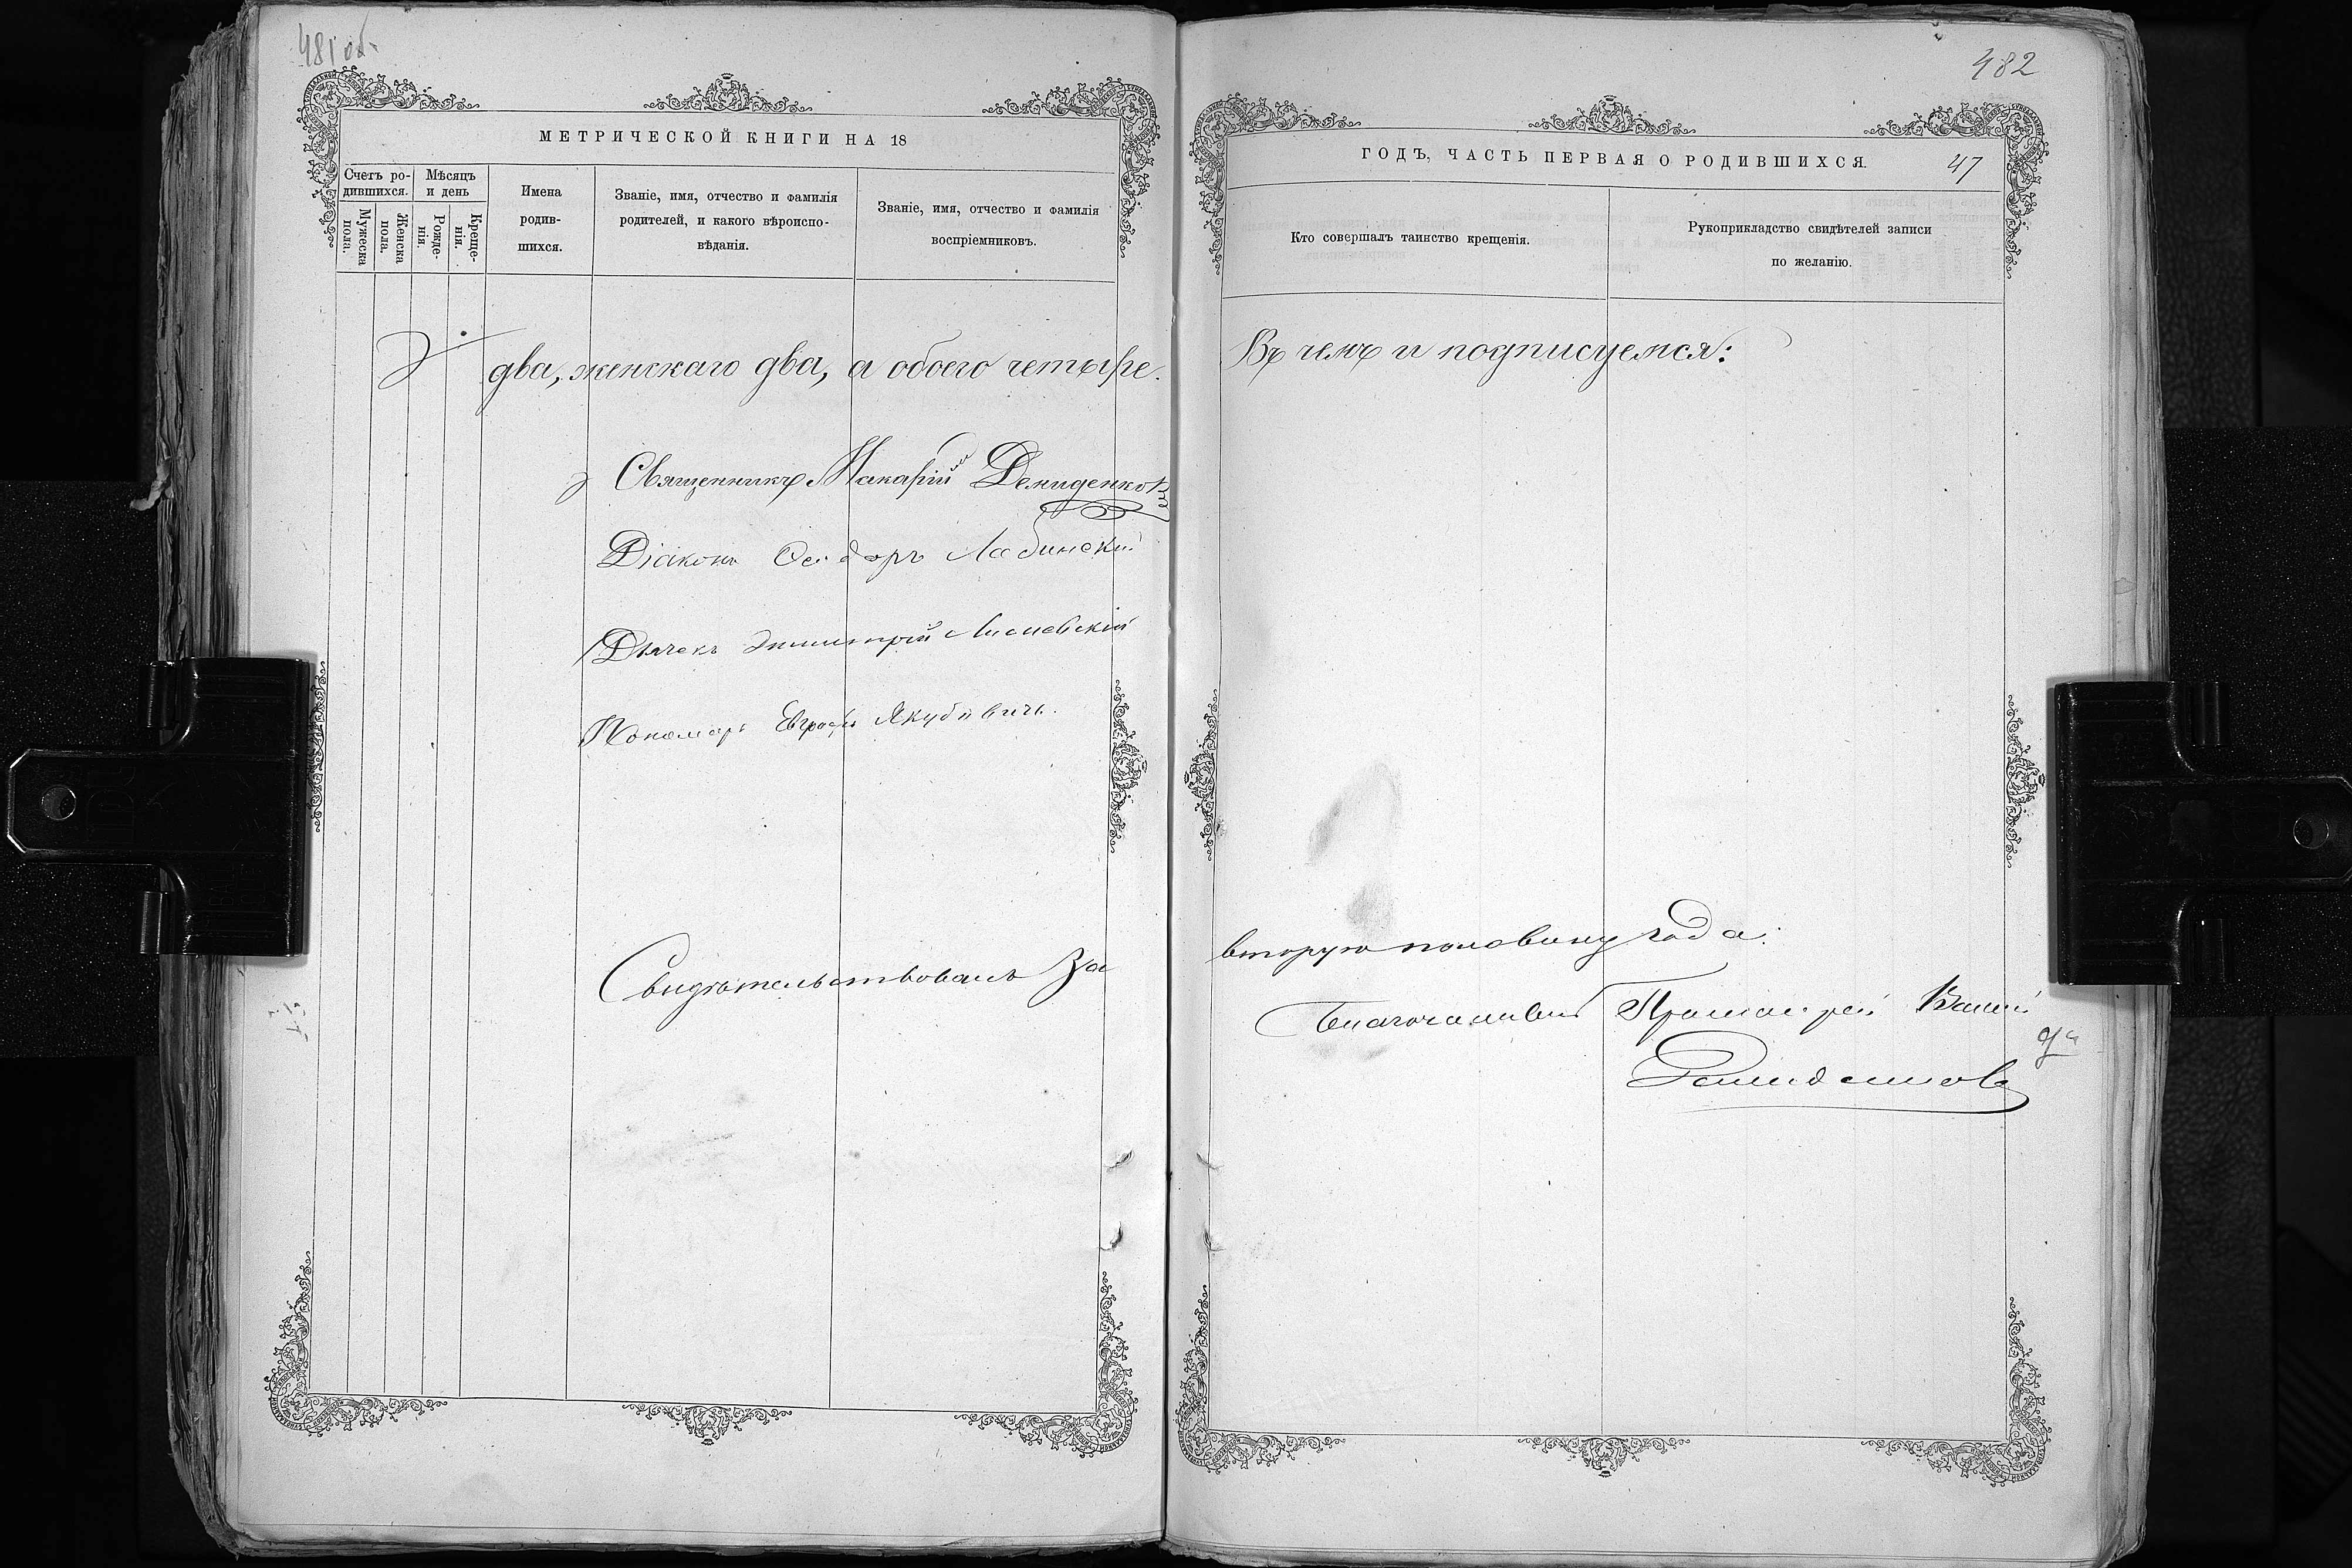 481 об.
МЕТРИЧЕСКОЙ КНИГИ НА 18
Счетъ ро-
дившихся.
Мѣсяцъ
и день
Мужеска
пола.
Женска
пола.
Рожде-
нія.
Креще-
нія.
Имена
родив-
шихся.
Званіе, имя, отчество и фамилія
родителей, и какого вѣроиспо-
вѣданія.
Званіе, имя, отчество и фамилія
воспріемниковъ.
два, женскаго два, а обоего четыре.
Священникъ Макарій Демиденковъ
Діаконъ Ѳеодоръ Лабинскій
Дьячекъ Димитрій
Пономарь Евграфъ Якубовичъ.
Свидѣтельствовалъ За
482
ГОДЪ, ЧАСТЬ ПЕРВАЯ О РОДИВШИХСЯ.
47
Кто совершалъ таинство крещенія.
Рукоприкладство свидѣтелей записи
по желанію.
Въ чемъ и подписуемся:
вторую половину года:
Благочинный Протоіерей